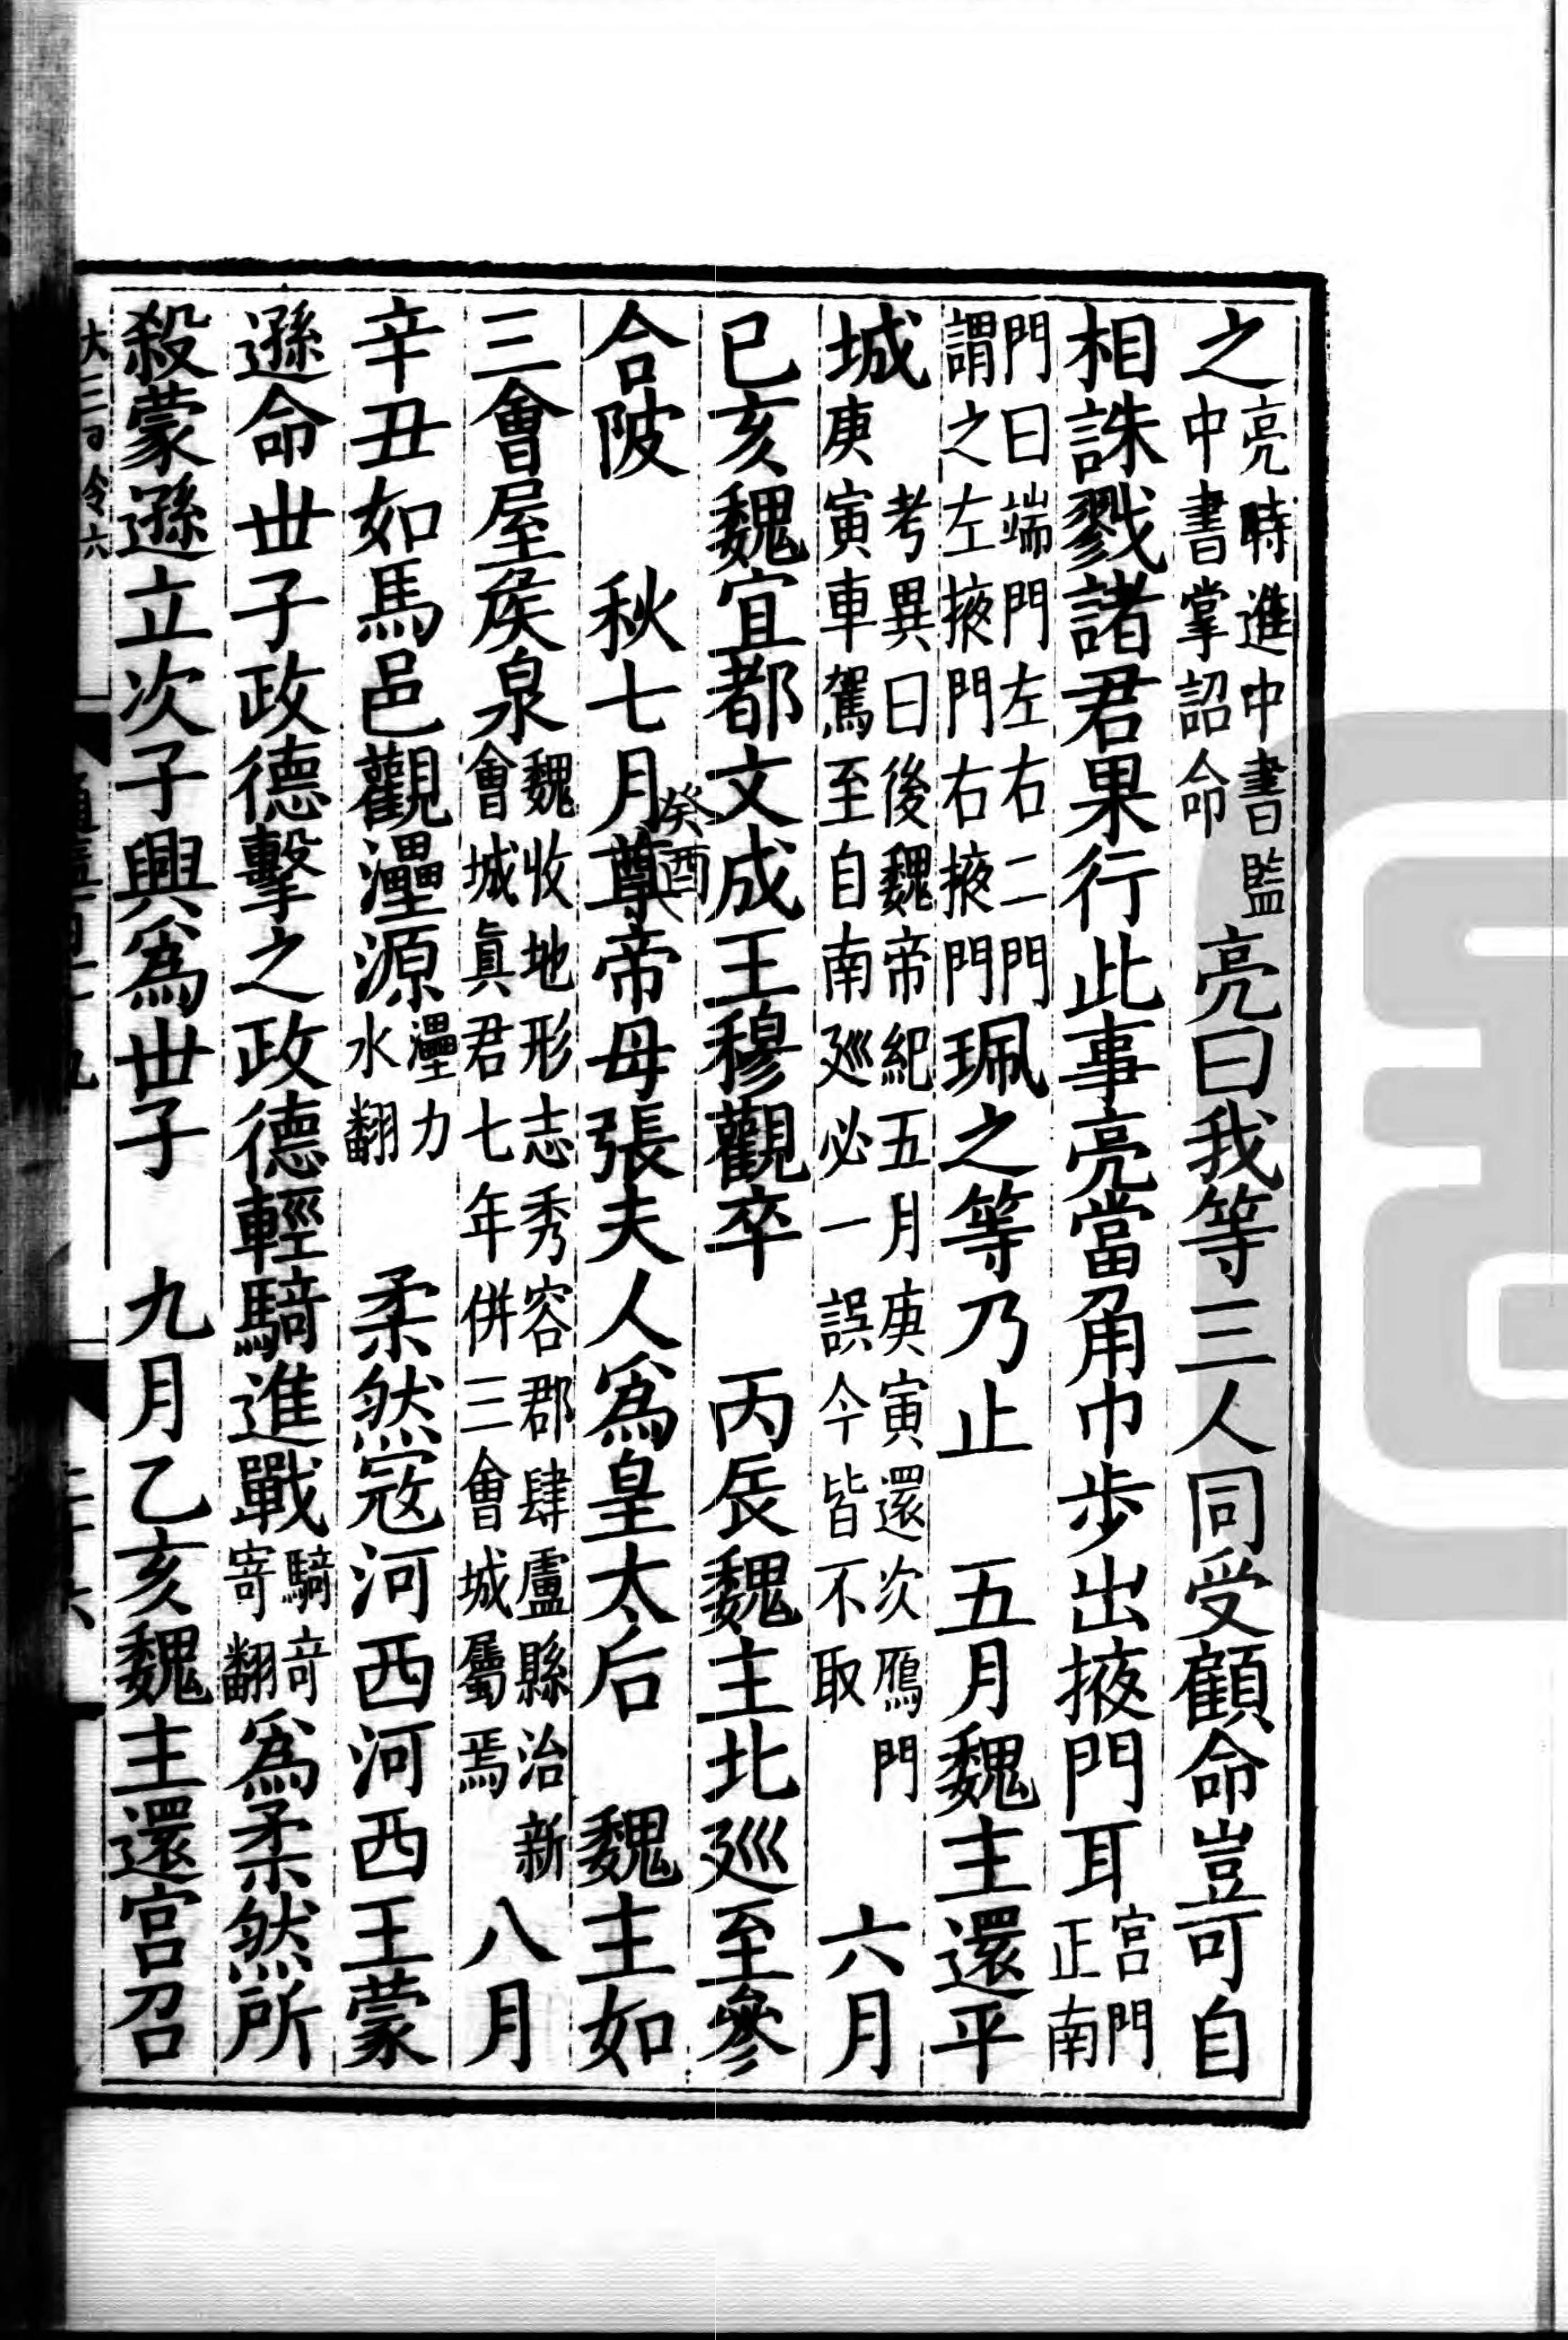 之亮時進中書監中書掌詔命亮曰我等三人同受顧命豈可自
相誅戮諸君果行此事亮當角巾步出掖門耳宮門正南
門曰端門左右二門謂之左掖門右掖門珮之等乃止　五月魏主還平
城考異曰後魏帝紀五月庚寅還次鴈門庚寅車駕至自南廵必一誤今皆不取　六月
已亥魏宜都文成王穆觀卒　丙辰魏主北廵至參
合陂　秋七月癸酉尊帝母張夫人爲皇太后　魏主如
三會屋矦泉魏收地形志秀容郡肆盧縣治新會城眞君七年併三會城屬焉　八月
辛丑如馬邑觀灅源灅力水翻　柔然寇河西河西王蒙
遜命丗子政德擊之政德輕騎進戰騎奇寄翻爲柔然所
殺蒙遜立次子興爲丗子　九月乙亥魏主還宮召